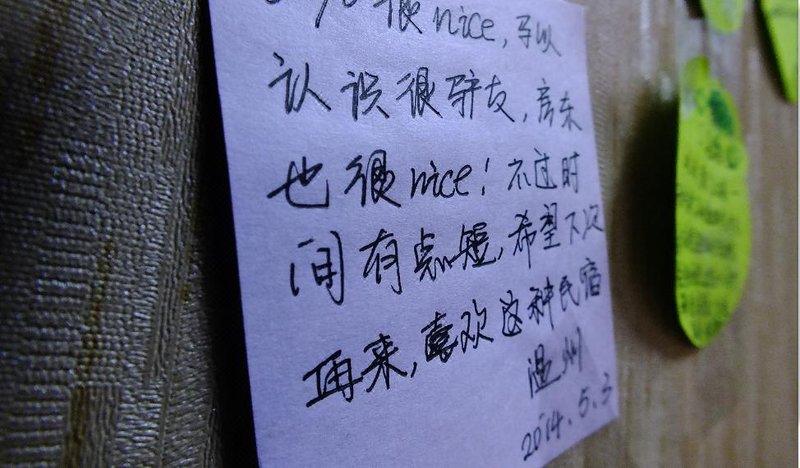 很nice，可以
认识很驴友，房东
也很nice！不过时
间有点短，希望下次
再来，喜欢这种民宿
温州
2014.5.3